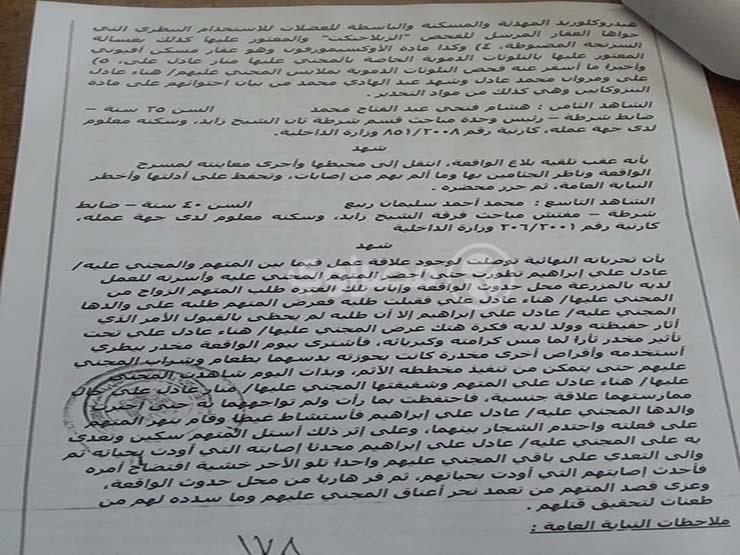 هيدروكلوريد المهدئة والمسكنة والباسطة للعضلات للاستخدام البيطري التي
حواها العقار المرسل للفحص "الزيلاجيكت" والمعثور عليها كذلك بغسالة
السرنجة المضبوطة، ٤) وكذا مادة الأوكسيمورفون وهو عقار مسكن أفيوني
المعثور عليها بالتلوثات الدموية الخاصة بالمجني عليها منار عادل على، ٥)
وأخيرا ما أسفر عنه فحص التلوثات الدموية بملابس المجني عليهم/ هناء عادل
على ومروان محمد عادل وشهد عبد الهادي محمد من بيان احتوائهم على مادة
البنزوكايين وهي كذلك من مواد التخدير .
الشاهد الثامن : هشام فتحي عبد الفتاح محمد السن ٣٥ سنة –
ضابط شرطة – رئيس وحدة مباحث قسم شرطة ثان الشيخ زايد، وسكنه معلوم
لدى جهة عمله، كارنية رقم ٨٥١/٢٠٠٨ وزارة الداخلية.
شهد
بأنه عقب تلقيه بلاغ الواقعة، انتقل إلى محيطها وأجرى معاينته لمسرح
الواقعة وناظر الجثامين بها وما ألم بهم من إصابات، وتحفظ على أدلتها وأخطر
النيابة العامة، ثم حرر محضره .
الشاهد التاسع : محمد أحمد سليمان ربيع السن ٤٠ سنة – ضابط
شرطة – مفتش مباحث فرقة الشيخ زايد، وسكنه معلوم لدى جهة عمله،
كارنية رقم ٢٠٦/٢٠٠١ وزارة الداخلية
شهد
بأن تحرياته النهائية توصلت لوجود علاقة عمل فيما بين المتهم والمجني عليه/
عادل علي إبراهيم تطورت حتى أحضر المتهم المجني عليه وأسرته للعمل
لديه بالمزرعة محل حدوث الواقعة وإبان تلك الفترة طلب المتهم الزواج من
المجني عليها/ هناء عادل علي فقبلت طلبه فعرض المتهم طلبه على والدها
المجني عليه/ عادل علي إبراهيم إلا أن طلبه لم يحظى بالقبول الأمر الذي
أثار حفيظته وولد لديه فكرة هتك عرض المجني عليها/ هناء عادل علي تحت
تأثير مخدر ثارا لما مس كرامته وكبريائه، فأشترى بيوم الواقعة مخدر بيطري
أستخدمه وأقراص أخرى مخدرة كانت بحوزته بدسهما بطعام وشراب المجني
عليهم حتى يتمكن من تنفيذ مخططه الأثم، وبذات اليوم شاهدت المجني
عليها/ هناء عادل علي المتهم وشقيقتها المجني عليها/ منار عادل علي حال
ممارستهما علاقة جنسية، فاحتفظت بما رأت ولم تواجههما به حتى أخبرت
والدها المجني عليه/ عادل علي إبراهيم فأستشاط غيظا وقام بنهر المتهم
على فعلته واحتدم الشجار بينهما، وعلى إثر ذلك أستل المتهم سكين وتعدى
به على المجني عليه/ عادل علي إبراهيم محدثا إصابته التي أودت بحياته ثم
والى التعدي على باقي المجني عليهم واحدا تلو الأخر خشية افتضاح أمره
فأحدث إصابتهم التي أودت بحياتهم، ثم فر هاربا من محل حدوث الواقعة،
وعزى قصد المتهم من تعمد نحر أعناق المجني عليهم وما سدده لهم من
طعنات لتحقيق قتلهم .
ملاحظات النيابة العامة :
١٧٨